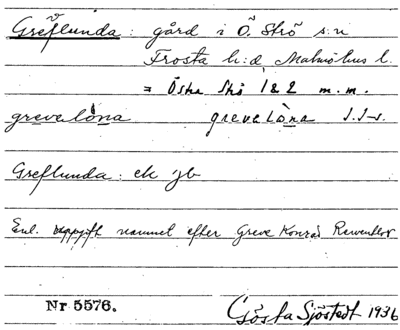 Greflunda: gård i Ö. Strö s:n
Frosta h:d, Malmöhus l.
= Östra Strö 1 & 2 m.m.
grevelòna grevelòna
Greflunda: ek jb
Enl. uppgift namnet efter Greve Konrad Reventlov
Nr 5576. Gösta Sjöstedt 1936